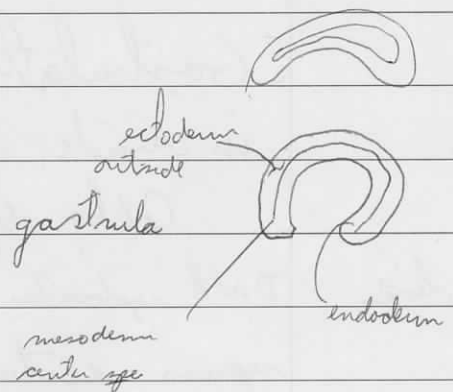 ectoderm
outside
gastrula
endoderm
mesoderm
center